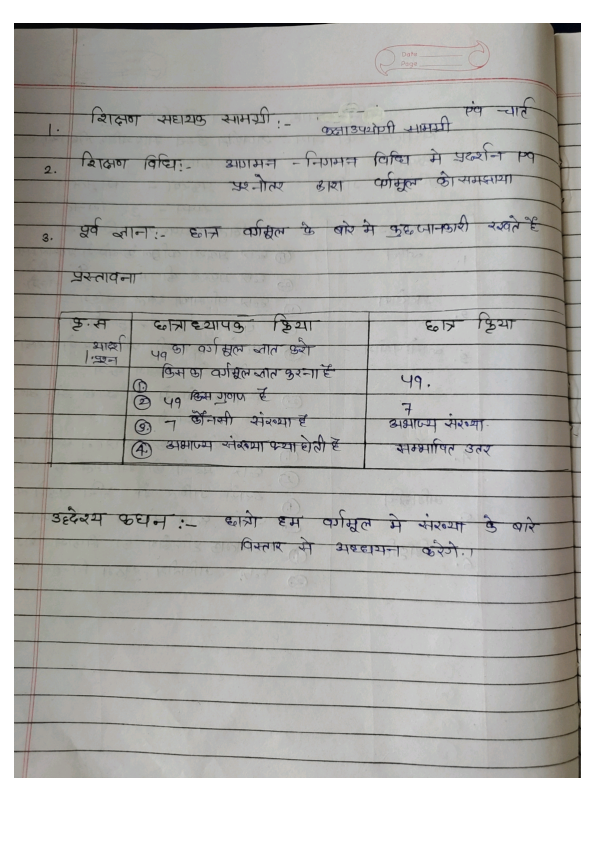 Date
Page
1. शिक्षण सहायक सामग्री :- एवं चार्ट
कक्षा उपयोगी सामग्री
2. शिक्षण विधि :- आगमन - निगमन विधि मे प्रदर्शन एवं
प्रश्नोतर द्वारा वर्गमूल को समझाया
3. पूर्व ज्ञान :- छात्र वर्गमूल के बारे मे कुछ जानकारी रखते है
प्रस्तावना
क्र.स छात्राध्यापक क्रिया छात्र क्रिया
1. प्रश्न ५१ का वर्गमूल ज्ञात करो
① किस का वर्गमूल ज्ञात करना है ५१.
② ५१ किस गुणज है 7
③ 7 कौनसी संख्या है अभाज्य संख्या
④ अभाज्य संख्या क्या होती है सम्भावित उतर
उद्देश्य कथन :- छात्रो हम वर्गमूल मे संख्या के बारे
विस्तार से अध्ययन करेगे।